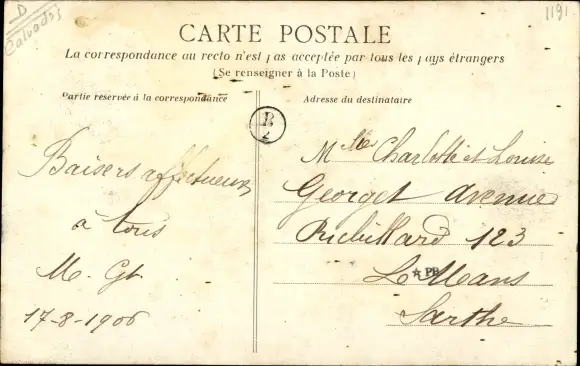 D
Calvados
1191
CARTE POSTALE
La correspondance au recto n'est pas acceptée par tous les pays étrangers
(Se renseigner à la Poste)
Partie réservée à la correspondance
Adresse du destinataire
B
2
Baisers affectueux
à tous
M. Gt.
17-8-1906
Mlles Charlotte et Louise
Georget avenue
123
Le Mans
☆PB
Sarthe